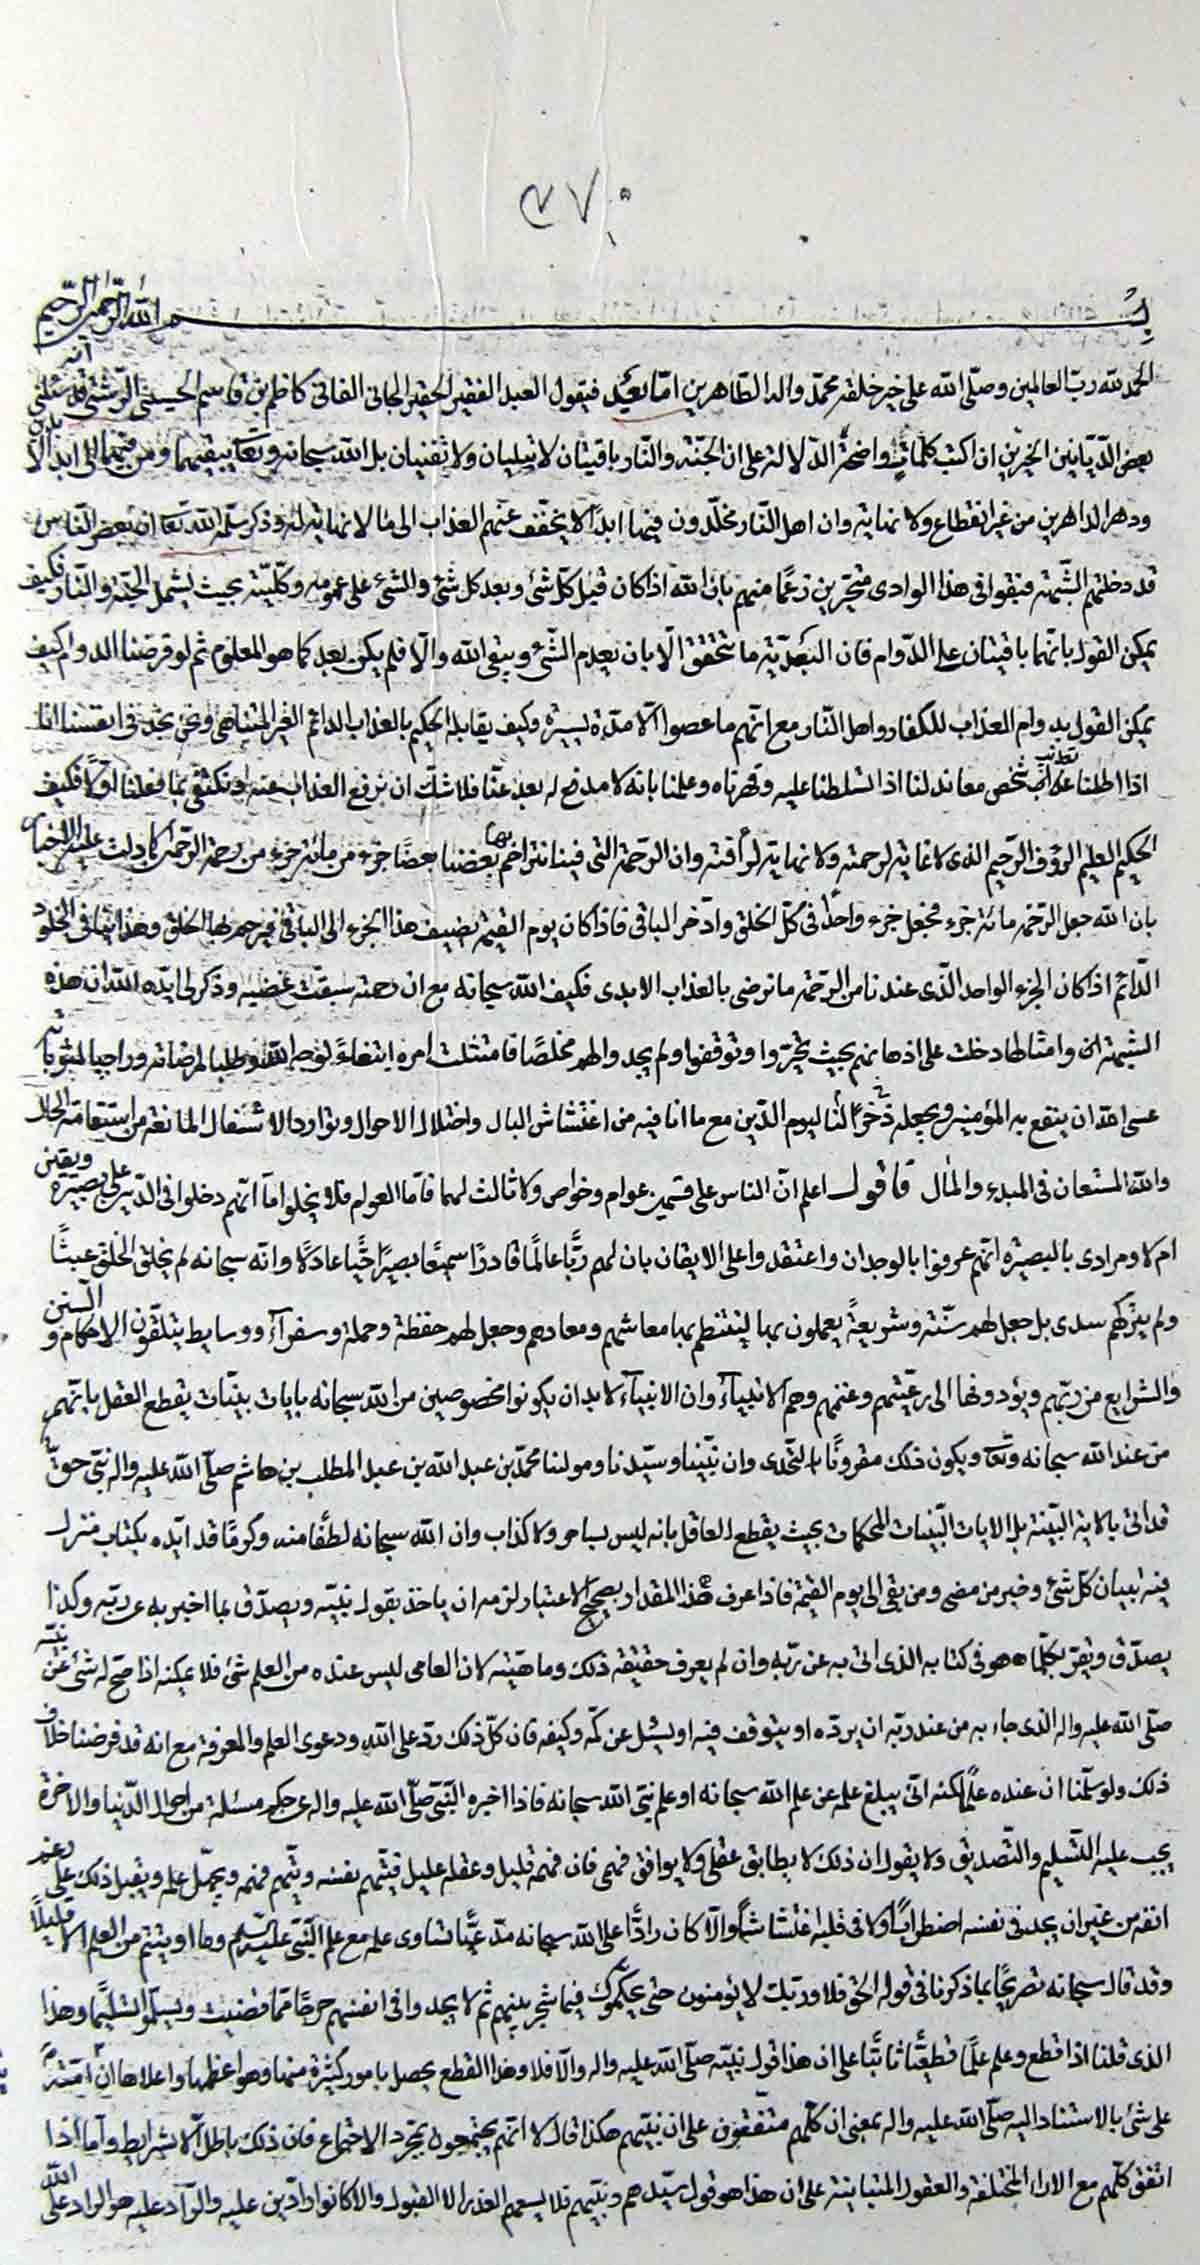 ٢٧٠
بسم الله الرحمن الرحيم
الحمد لله رب العالمين وصلى الله على خير خلقه محمد واله الطاهرين اما بعد فيقول العبد الفقير الحقير الجانى الفانى كاظم بن قاسم الحسينى الرشتى انه قد سئلنى
بعض الديانين الخيرين ان اكتب كلمات واضحة الدلالة على ان الجنة والنار باقيتان لا تبليان ولا تفنيان بل الله سبحانه وتعا يبقيهما ومن فيهما الى ابد الابدين
ودهر الداهرين من غير انقطاع ولا نهاية وان اهل النار مخلدون فيها ابدا لا يخفف عنهم العذاب الى ما لا نهاية له وذكر سلمه الله تعا ان بعض الناس
قد دخلتهم الشبهة فبقوا فى هذا الوادى متحيرين زعما منهم بان الله اذا كان قبل كل شئ وبعد كل شئ والشئ على عمومه وكليته بحيث يشمل الجنة والنار فكيف
يمكن القول بانهما باقيتان على الدوام فان البعدية ما تتحقق الا بان يعدم الشئ ويبقى الله والا فلم يكن بعد كما هو المعلوم ثم لو فرضنا الدوام كيف
يمكن القول بدوام العذاب للكفار واهل النار مع انهم ما عصوا الا مدة يسيرة وكيف يقابله الحكيم بالعذاب الدائم الغير المتناهى ونحن نجد فى انفسنا انا
اذا اطلنا تعذيب شخص معاند لنا اذا تسلطنا عليه وقهرناه وعلمنا بانه لا مدفع له بعد عنا فلا شك ان نرفع العذاب عنه ونكتفى بما فعلنا اولا فكيف
الحكيم العليم الرؤف الرحيم الذى لا غاية لرحمته ولا نهاية لرأفته وان الرحمة التى فينا نتراحم بها بعضنا بعضا جزء من مائة جزء من رحمة الرحمن كما دلت عليه الاخبار
بان الله جعل الرحمة مائة جزء فجعل جزء واحدا فى كل الخلق وادخر الباقى فاذا كان يوم القيمة يضيف هذا الجزء الى الباقى فيرحم بها الخلق وهذا ينافى الخلود
الدائم اذ كان الجزء الواحد الذى عندنا من الرحمة ما ترضى بالعذاب الابدى فكيف الله سبحانه مع ان رحمته سبقت غضبه وذكر لى ايده الله ان هذه
الشبهة وامثالها دخلت على اذهانهم بحيث تحيروا وتوقفوا ولم يجدوا لهم مخلصا فامتثلت امره ابتغاء لوجه الله وطلبا لمرضاته وراجيا لمثوباته
عسى الله ان ينتفع به المؤمنين ويجعله ذخرا لنا ليوم الدين مع ما انا فيه من اغتشاش البال واختلال الاحوال وتوارد الاشغال المانعة من استقامة الحال
والله المستعان فى المبدء والمآل فاقول اعلم ان الناس على قسمين عوام وخواص ولا ثالث لهما فاما العوام فلا يخلوا اما انهم دخلوا فى الدين على بصيرة ويقين
ام لا ومرادى بالبصيرة انهم عرفوا بالوجدان واعتقدوا على الايقان بان لهم ربا عالما قادرا سميعا بصيرا حيا عادلا وانه سبحانه لم يخلق الخلق عبثا
ولم يتركهم سدى بل جعل لهم سنة وشريعة يعملون بها لينتظم بها معاشهم ومعادهم وجعل لهم حفظة وحملة وسفرآء ووسايط يتلقون الاحكام والسنن
والشرايع من ربهم ويؤدونها الى رعيتهم وغنمهم وهم الانبياء وان الانبياء لا بد ان يكونوا مخصوصين من الله سبحانه بايات بينات يقطع العقل بانهم
من عند الله سبحانه وتعا ويكون ذلك مقرونا بالتحدى وان نبينا وسيدنا ومولنا محمد بن عبد الله بن عبد المطلب بن هاشم صلى الله عليه واله نبى حق
قد اتى بالاية البينة بل الايات البينات المحكمات بحيث يقطع العاقل بانه ليس بساحر ولا كذاب وان الله سبحانه لطفا منه وكرما قد ايده بكتاب منزل
فيه تبيان كل شئ وخبر من مضى ومن بقى الى يوم القيمة فاذا عرف هذا المقدار بصحيح الاعتبار لزمه ان ياخذ بقول نبيه ويصدق بما اخبر به عن ربه وكذا
يصدق ويقر بكلما هو فى كتابه الذى اتى به عن ربه وان لم يعرف حقيقة ذلك وماهيته لان العامى ليس عنده من العلم شئ فلا يمكنه اذا صح له شئ عن نبيه
صلى الله عليه واله الذى جاء به من عند ربه ان يرده او يتوقف فيه او يسئل عن كمه وكيفه فان كل ذلك رد على الله ودعوى العلم والمعرفة مع انه قد فرضنا خلاف
ذلك ولو سلمنا ان عنده علما لكنه انى يبلغ علمه عن علم الله سبحانه او علم نبى الله سبحانه فاذا اخبره النبى صلى الله عليه واله عن حكم مسئلة من احوال الدنيا والاخرة
يجب عليه التسليم والتصديق ولا يقول ان ذلك لا يطابق عقلى ولا يوافق فهمى فان فهمه قليل وعقله عليل فيتهم نفسه ويتهم فهمه ويجهل علمه ويقبل ذلك على رغم
انفه من غير ان يجد فى نفسه اضطرابا ولا فى قلبه اغتشاشا والا كان رادا على الله سبحانه مدعيا تساوى علمه مع علم النبى عليه السلم وما اوتيتم من العلم الا قليلا
وقد قال سبحانه تصريحا بما ذكرنا فى قوله الحق فلا وربك لا يؤمنون حتى يحكموك فيما شجر بينهم ثم لا يجدوا فى انفسهم حرجا مما قضيت ويسلموا تسليما وهذا
الذى قلنا اذا قطع وعلم علما قطعيا ثابتا على ان هذا قول نبيه صلى الله عليه واله والا فلا وهذا القطع يحصل بامور كثيرة منها وهو اعظمها واعلاها ان
على شئ بالاستناد اليه صلى الله عليه واله بمعنى ان كلهم متفقون على ان نبيهم هكذا قال لا انهم يجتمعون بمجرد الاجتماع فان ذلك باطل الا بشرايط واما اذا
اتفق كلهم مع الاراء المختلفة والعقول المتباينة على ان هذا هو قول سيدهم ونبيهم فلا يسعهم العذر الا القبول والا كانوا رادين عليه والرآد عليه هو الراد على الله